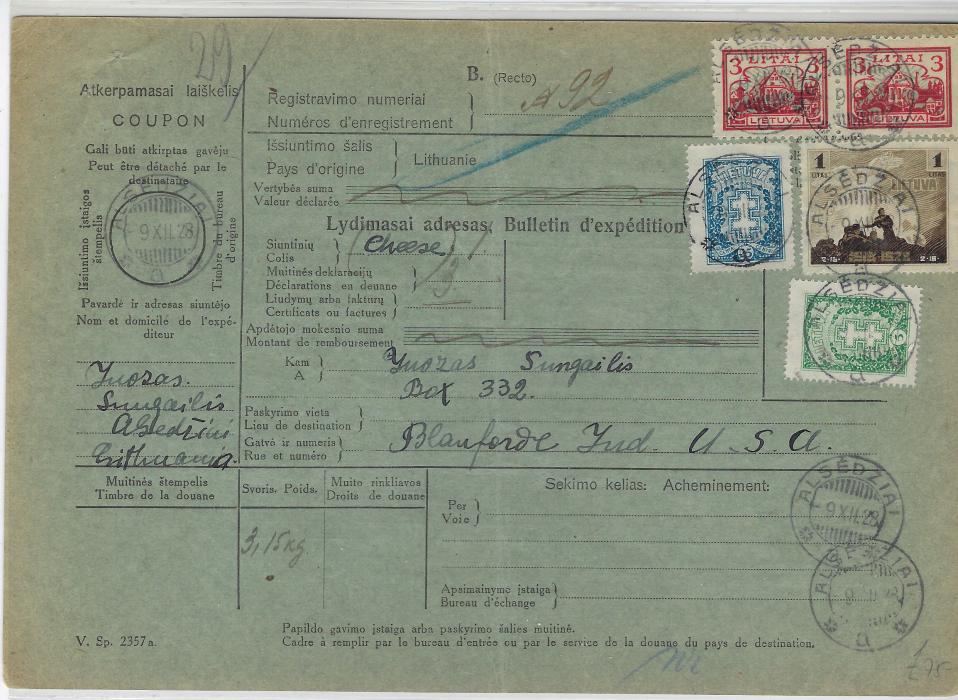 29
Atkerpamasai laiškelis
COUPON
Gali būti atkirptas gavėju
Peut être détaché par le
destinataire
Išsiuntimo įstaigos
štempelis
ALSĖDŽIAI
9 XII. 28
Timbre du bureau
d'origine
Pavardė ir adresas siuntėjo
Nom et domicile de l'expé-
diteur
Juozas
Sungailis
Alsedžiai
Lithuania
Muitinės štempelis
Timbre de la douane
B. (Recto)
Registravimo numeriai
Numéros d'enregistrement
A 92
Išsiuntimo šalis
Pays d'origine
Lithuanie
Vertybės suma
Valeur déclarée
Lydimasai adresas, Bulletin d'expédition
Siuntinių
Colis
Cheese
Muitinės deklaracijų
Déclarations en douane
3
Liudymų arba faktūrų
Certificats ou factures
Apdėtojo mokesnio suma
Montant de remboursement
Kam
A
Juozas Sungailis
Box 332.
Paskyrimo vieta
Lieu de destination
Gatvė ir numeris
Rue et numéro
Blanforde Ind. U.S.A.
Svoris. Poids.
3,15 kg
Muito rinkliavos
Droits de douane
Sekimo kelias: Acheminement:
Per
Voie
Apsimainymo įstaiga
Bureau d'échange
V. Sp. 2357 a.
Papildo gavimo įstaiga arba paskyrimo šalies muitinė.
Cadre à remplir par le bureau d'entrée ou par le service de la douane du pays de destination.
3 LITAI 3
LIETUVA
3 LITAI 3
LIETUVA
LIETUVA
ALSĖDŽIAI
1 1
LITAS LITAS
LIETUVA
1918-1928
ALSĖDŽIAI
ALSĖDŽIAI
ALSĖDŽIAI
9 XII. 28
ALSĖDŽIAI
£75-